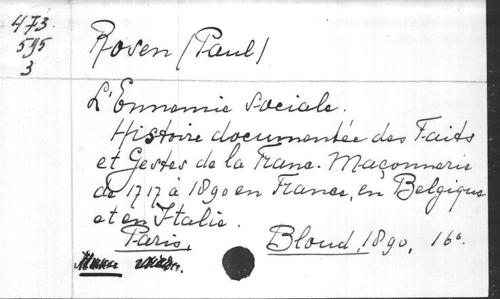 473.
595
3
Rosen (Paul)
L'Ennemie Sociale.
Histoire documentée des Faits
et Gestes de la Franc-Maçonnerie
de 1717 à 1890 en France, en Belgique
et en Italie.
Paris, Bloud, 1890, 16o.